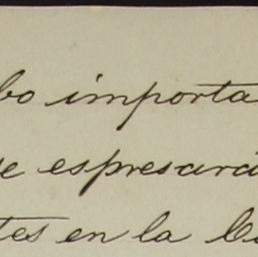 bo importa
e espresará
tes en la